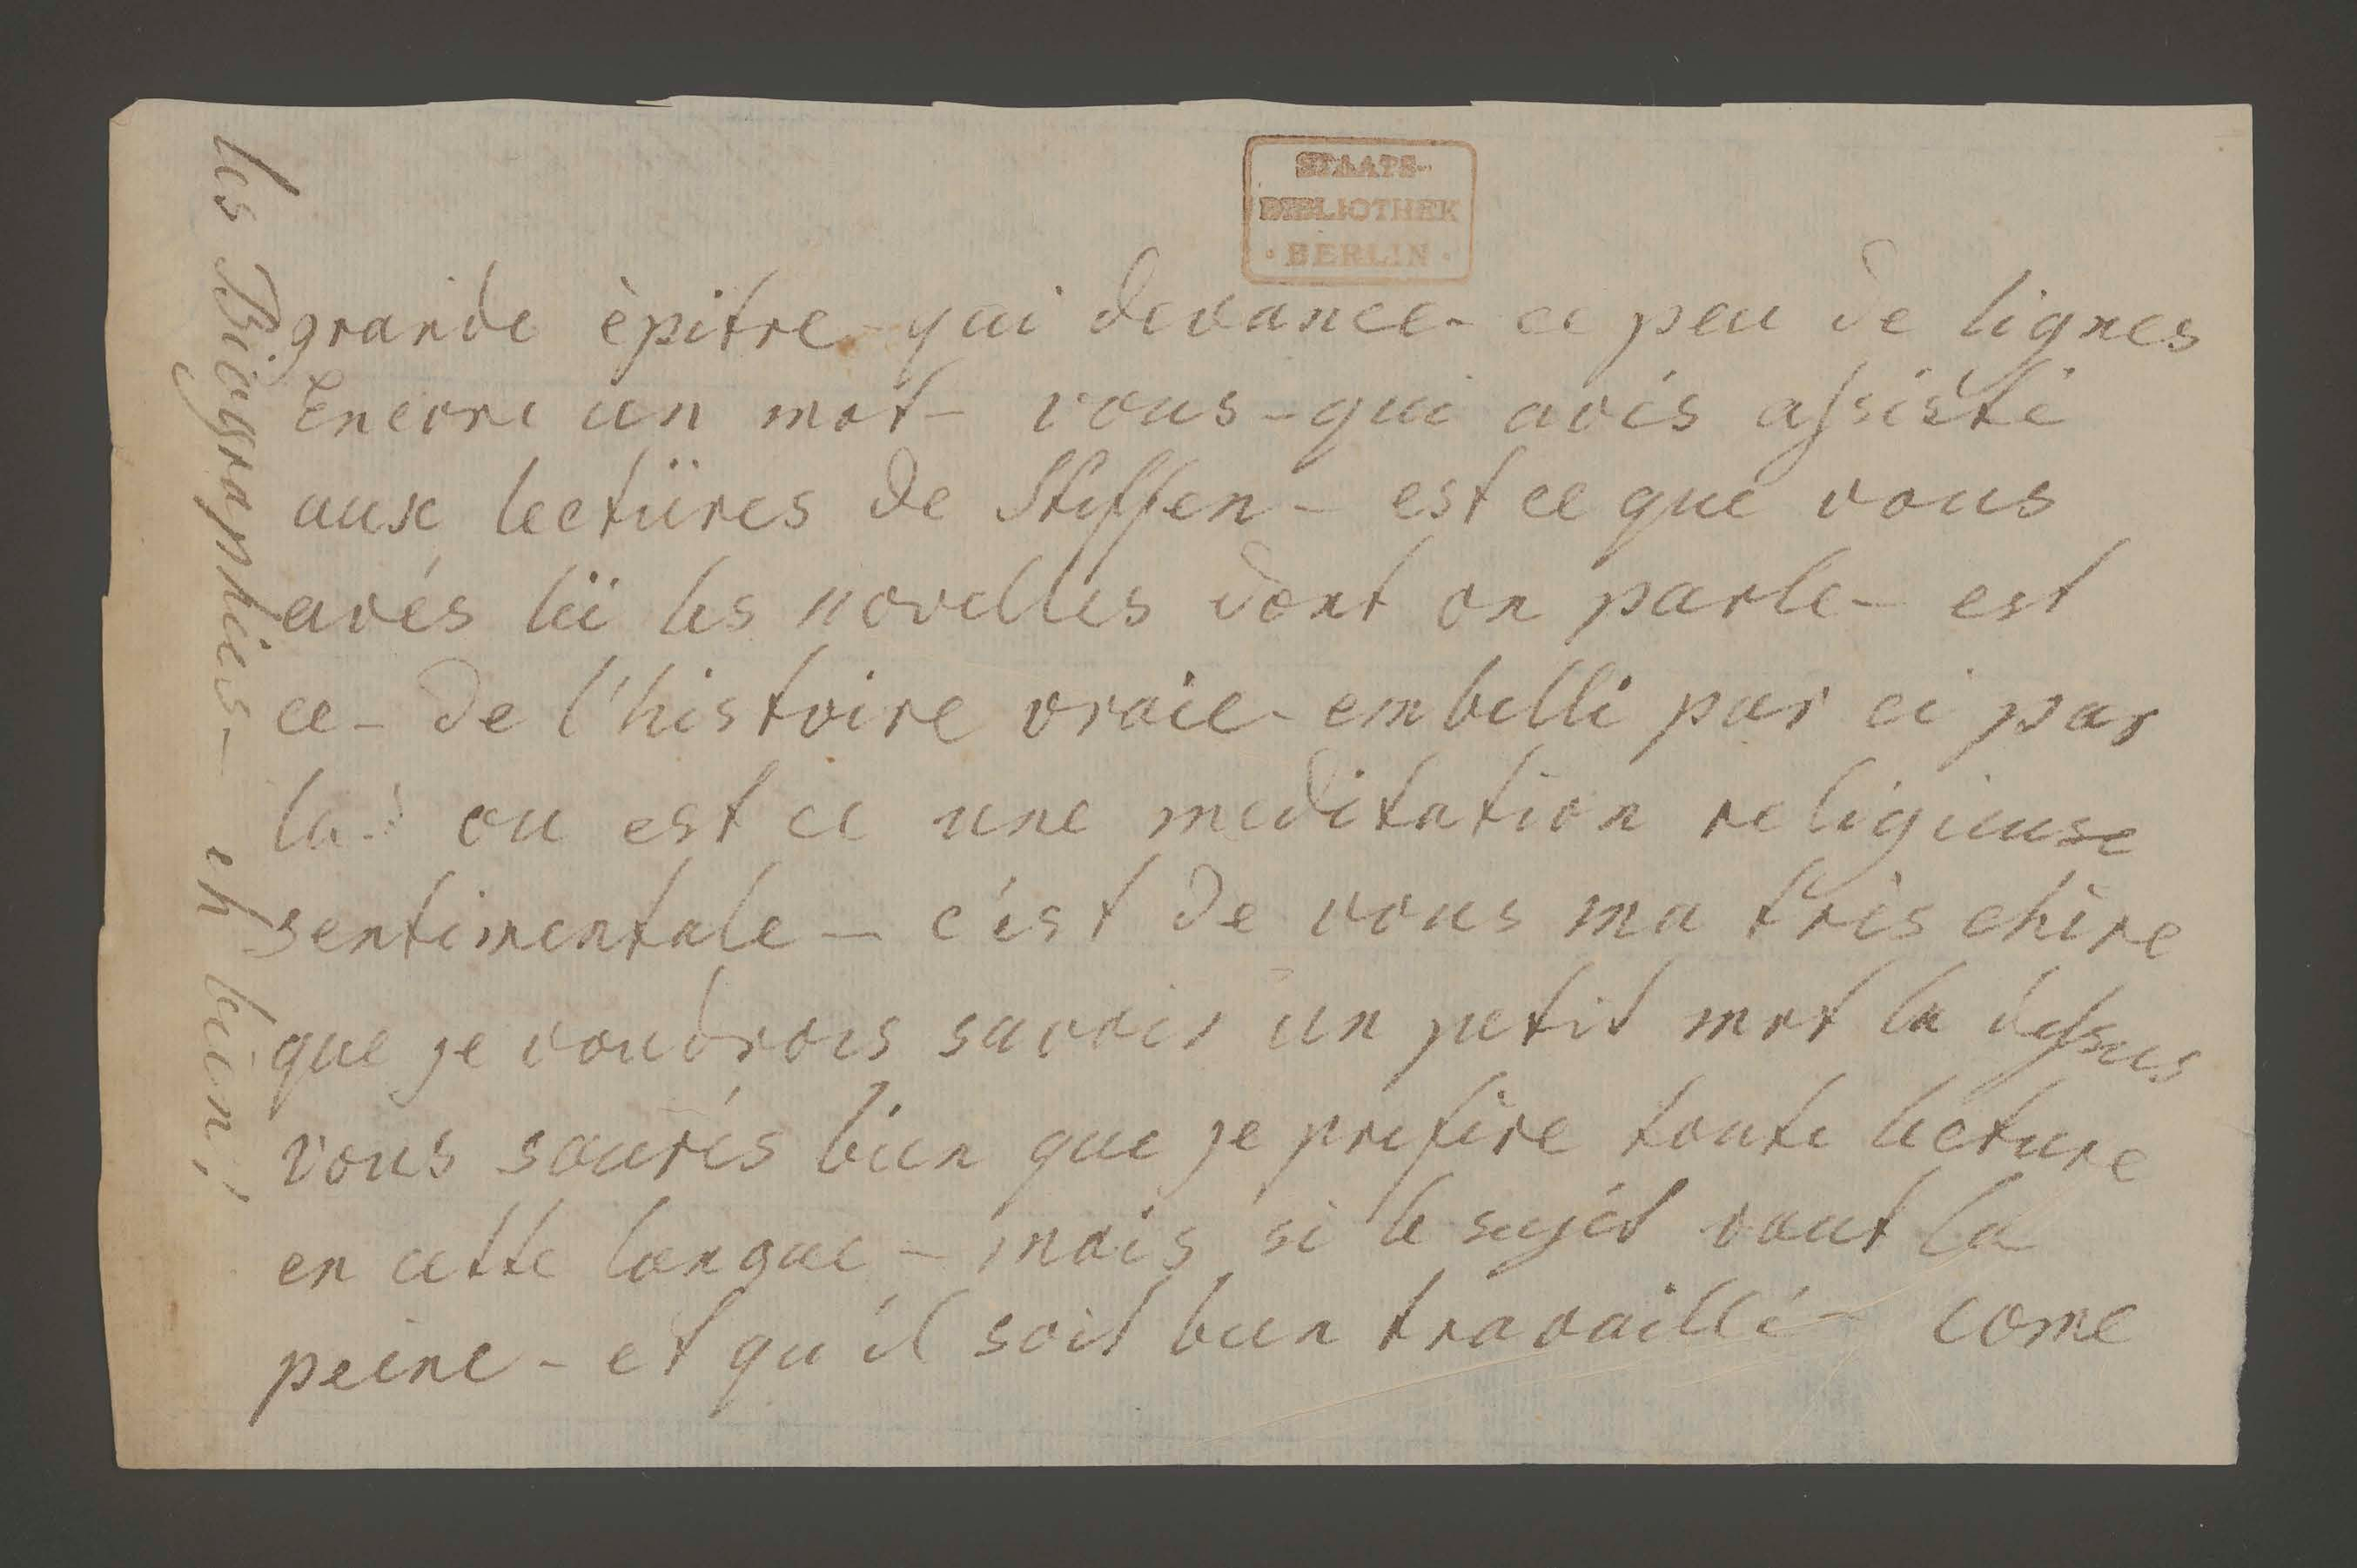 STAATS-
BIBLIOTHEK
· BERLIN ·
grande èpitre qui devance- ce peu de lignes
Encore un mot- vous-qui avés assisté
aux lectüres de Steffen- est ce que vous
avés lü les novelles dont on parle- est
ce- de l'histoire vraie- embelli par ci par
la? ou est ce une meditation religieuse
sentimentale- c'est de vous ma très chère
que je voudrois savoir un petit mot la dessus
vous saurés bien que je prefère toute lecture
en cette langue- mais si le sujet vaut la
peine- et qu'il soit bien travaillé- come
les Biographies- eh bien!